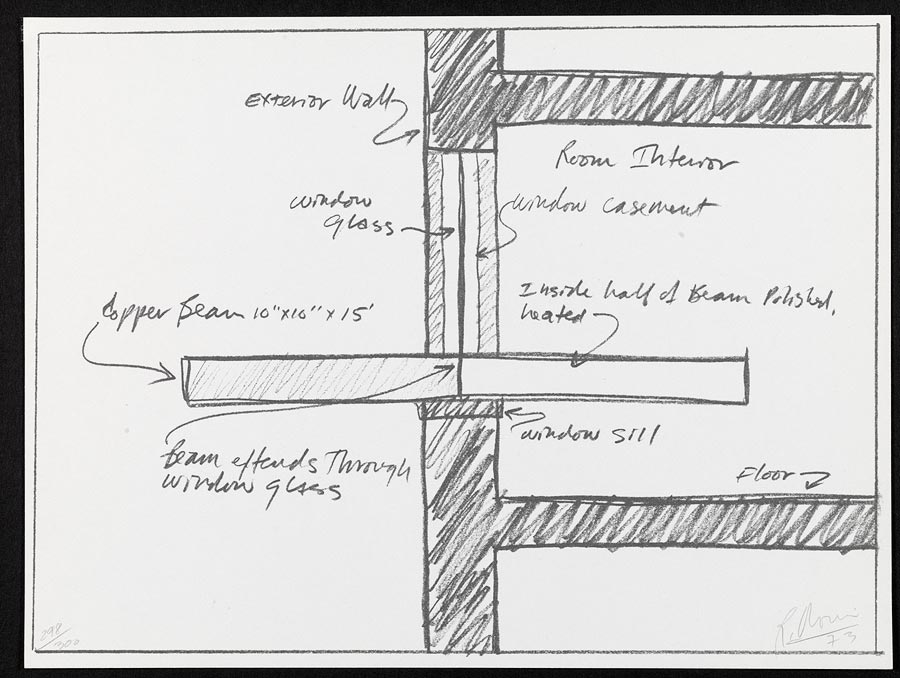 Exterior Wall
Room Interior
window
glass
window casement
Inside half of Beam Polished,
heated
Copper Beam 10"x10"x15'
window sill
Beam extends Through
window glass
Floor
298/300
R. Morris
73